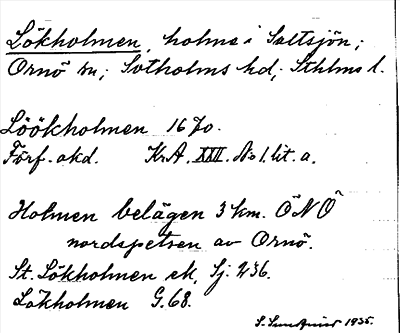 Lökholmen, holme i Saltsjön;
Ornö sn; Sotholms hd; Sthlms l.
Löökholmen 1670.
Förf. okd. KrA. XXII. No 1. lit. a.
Holmen belägen 3 km. ÖNÖ
nordspetsen av Ornö.
St. Lökholmen ek, Sj. 236.
Lökholmen G.68.
1935.